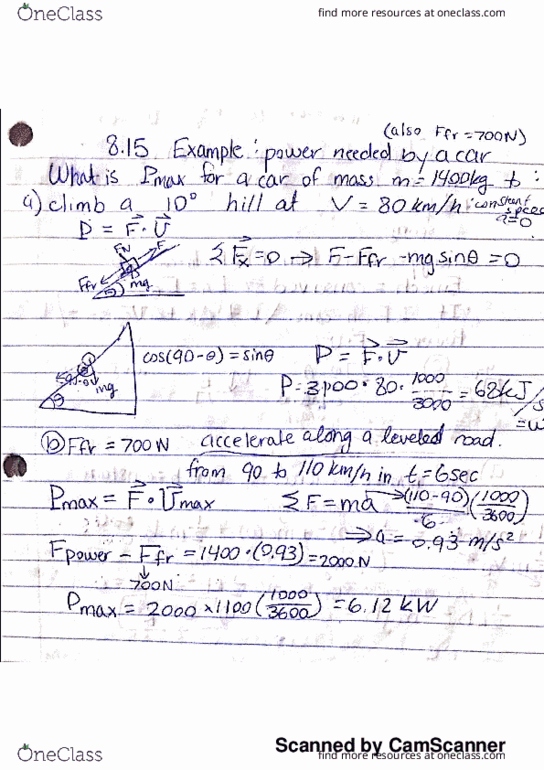 OneClass
find more resources at oneclass.com
(also Ffr = 700N)
8.15 Example: power needed by a car
What is Pmax for a car of mass m = 1400kg to:
a) climb a 10° hill at V = 80 km/h constant speed a=0
P = F⃗ · V⃗
FN F
Ffr θ mg
ΣF⃗x = 0 → F - Ffr - mg sinθ = 0
cos(90-θ) = sinθ
90-θ mg
θ
P = F⃗ · V⃗
P = 3100 · 80 · 1000/3000 = 68kJ/s
= W
b) Ffr = 700N accelerate along a leveled road.
from 90 to 110 km/h in t = 6sec
Pmax = F⃗ · V⃗max ΣF = ma → (110-90)/6 (1000/3600)
⇒ a = 0.93 m/s²
Fpower - Ffr = 1400 · (0.93) = 2000N
700N
Pmax = 2000 × 1100 (1000/3600) = 6.12 kW
Scanned by CamScanner
OneClass
find more resources at oneclass.com